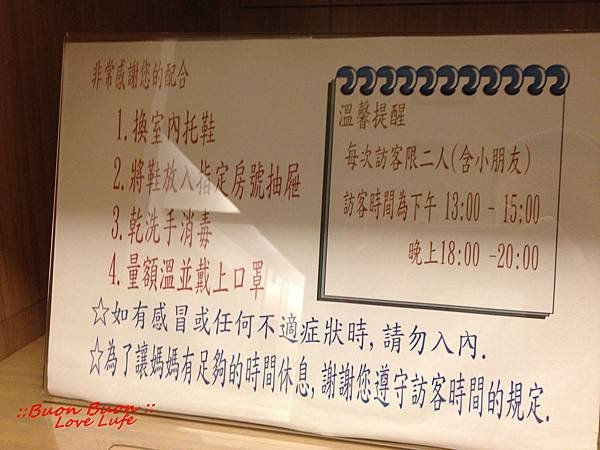 非常感謝您的配合
1.換室內托鞋
2.將鞋放入指定房號抽屜
3.乾洗手消毒
4.量額溫並戴上口罩
溫馨提醒
每次訪客限二人(含小朋友)
訪客時間為下午 13:00 - 15:00
晚上18:00 -20:00
☆如有感冒或任何不適症狀時, 請勿入內.
☆為了讓媽媽有足夠的時間休息, 謝謝您遵守訪客時間的規定.
::Buon Buon ::
Love Lufe